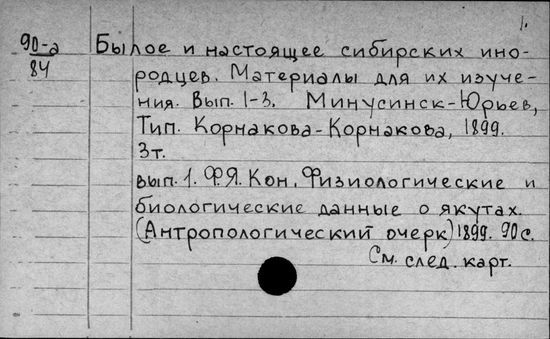 1.
90-а
84
Былое и настоящее сибирских ино-
родцев. Материалы для их изуче-
ния. Вып. 1-3. Минусинск-Юрьев,
Тип. Корнакова-Корнакова, 1899.
3т.
вып. 1. Ф.Я. Кон. Физиологические и
биологические данные о якутах.
(Антропологический очерк) 1899. 90 с.
См. след. карт.